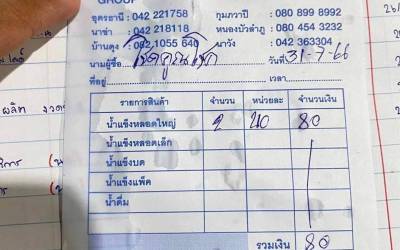 GROUP
อุดรธานี : 042 221758 กุมภวาปี : 080 899 8992
นาข่า : 042 218118 หนองบัวลำภู : 080 454 3232
บ้านดุง : 082 1055 640 นาวัง : 042 363304
นามผู้ซื้อ โชคคูณโชค วันที่ 31-7-66
ที่อยู่ เวลา
รายการสินค้า จำนวน หน่วยละ จำนวนเงิน
น้ำแข็งหลอดใหญ่ 2 40 80
น้ำแข็งหลอดเล็ก
น้ำแข็งบด
น้ำแข็งแพ็ค
น้ำดื่ม
รวมเงิน 80